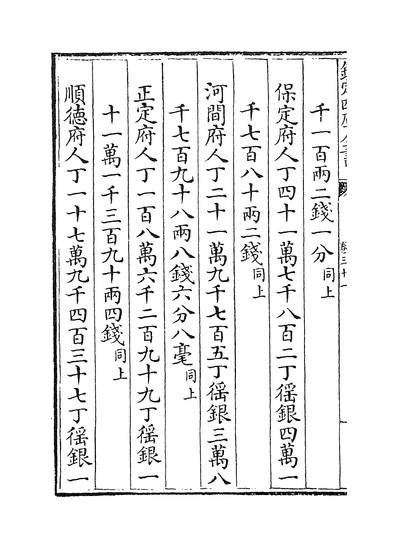 千一百兩二錢一分同上
保定府人丁四十一萬七千八百二丁徭銀四萬一
千七百八十兩二錢同上
河間府人丁二十一萬九千七百五丁徭銀三萬八
千七百九十八兩八錢六分八毫同上
正定府人丁一百八萬六千二百九十九丁徭銀一
十一萬一千三百九十兩四錢同上
順徳府人丁一十七萬九千四百三十七丁徭銀一